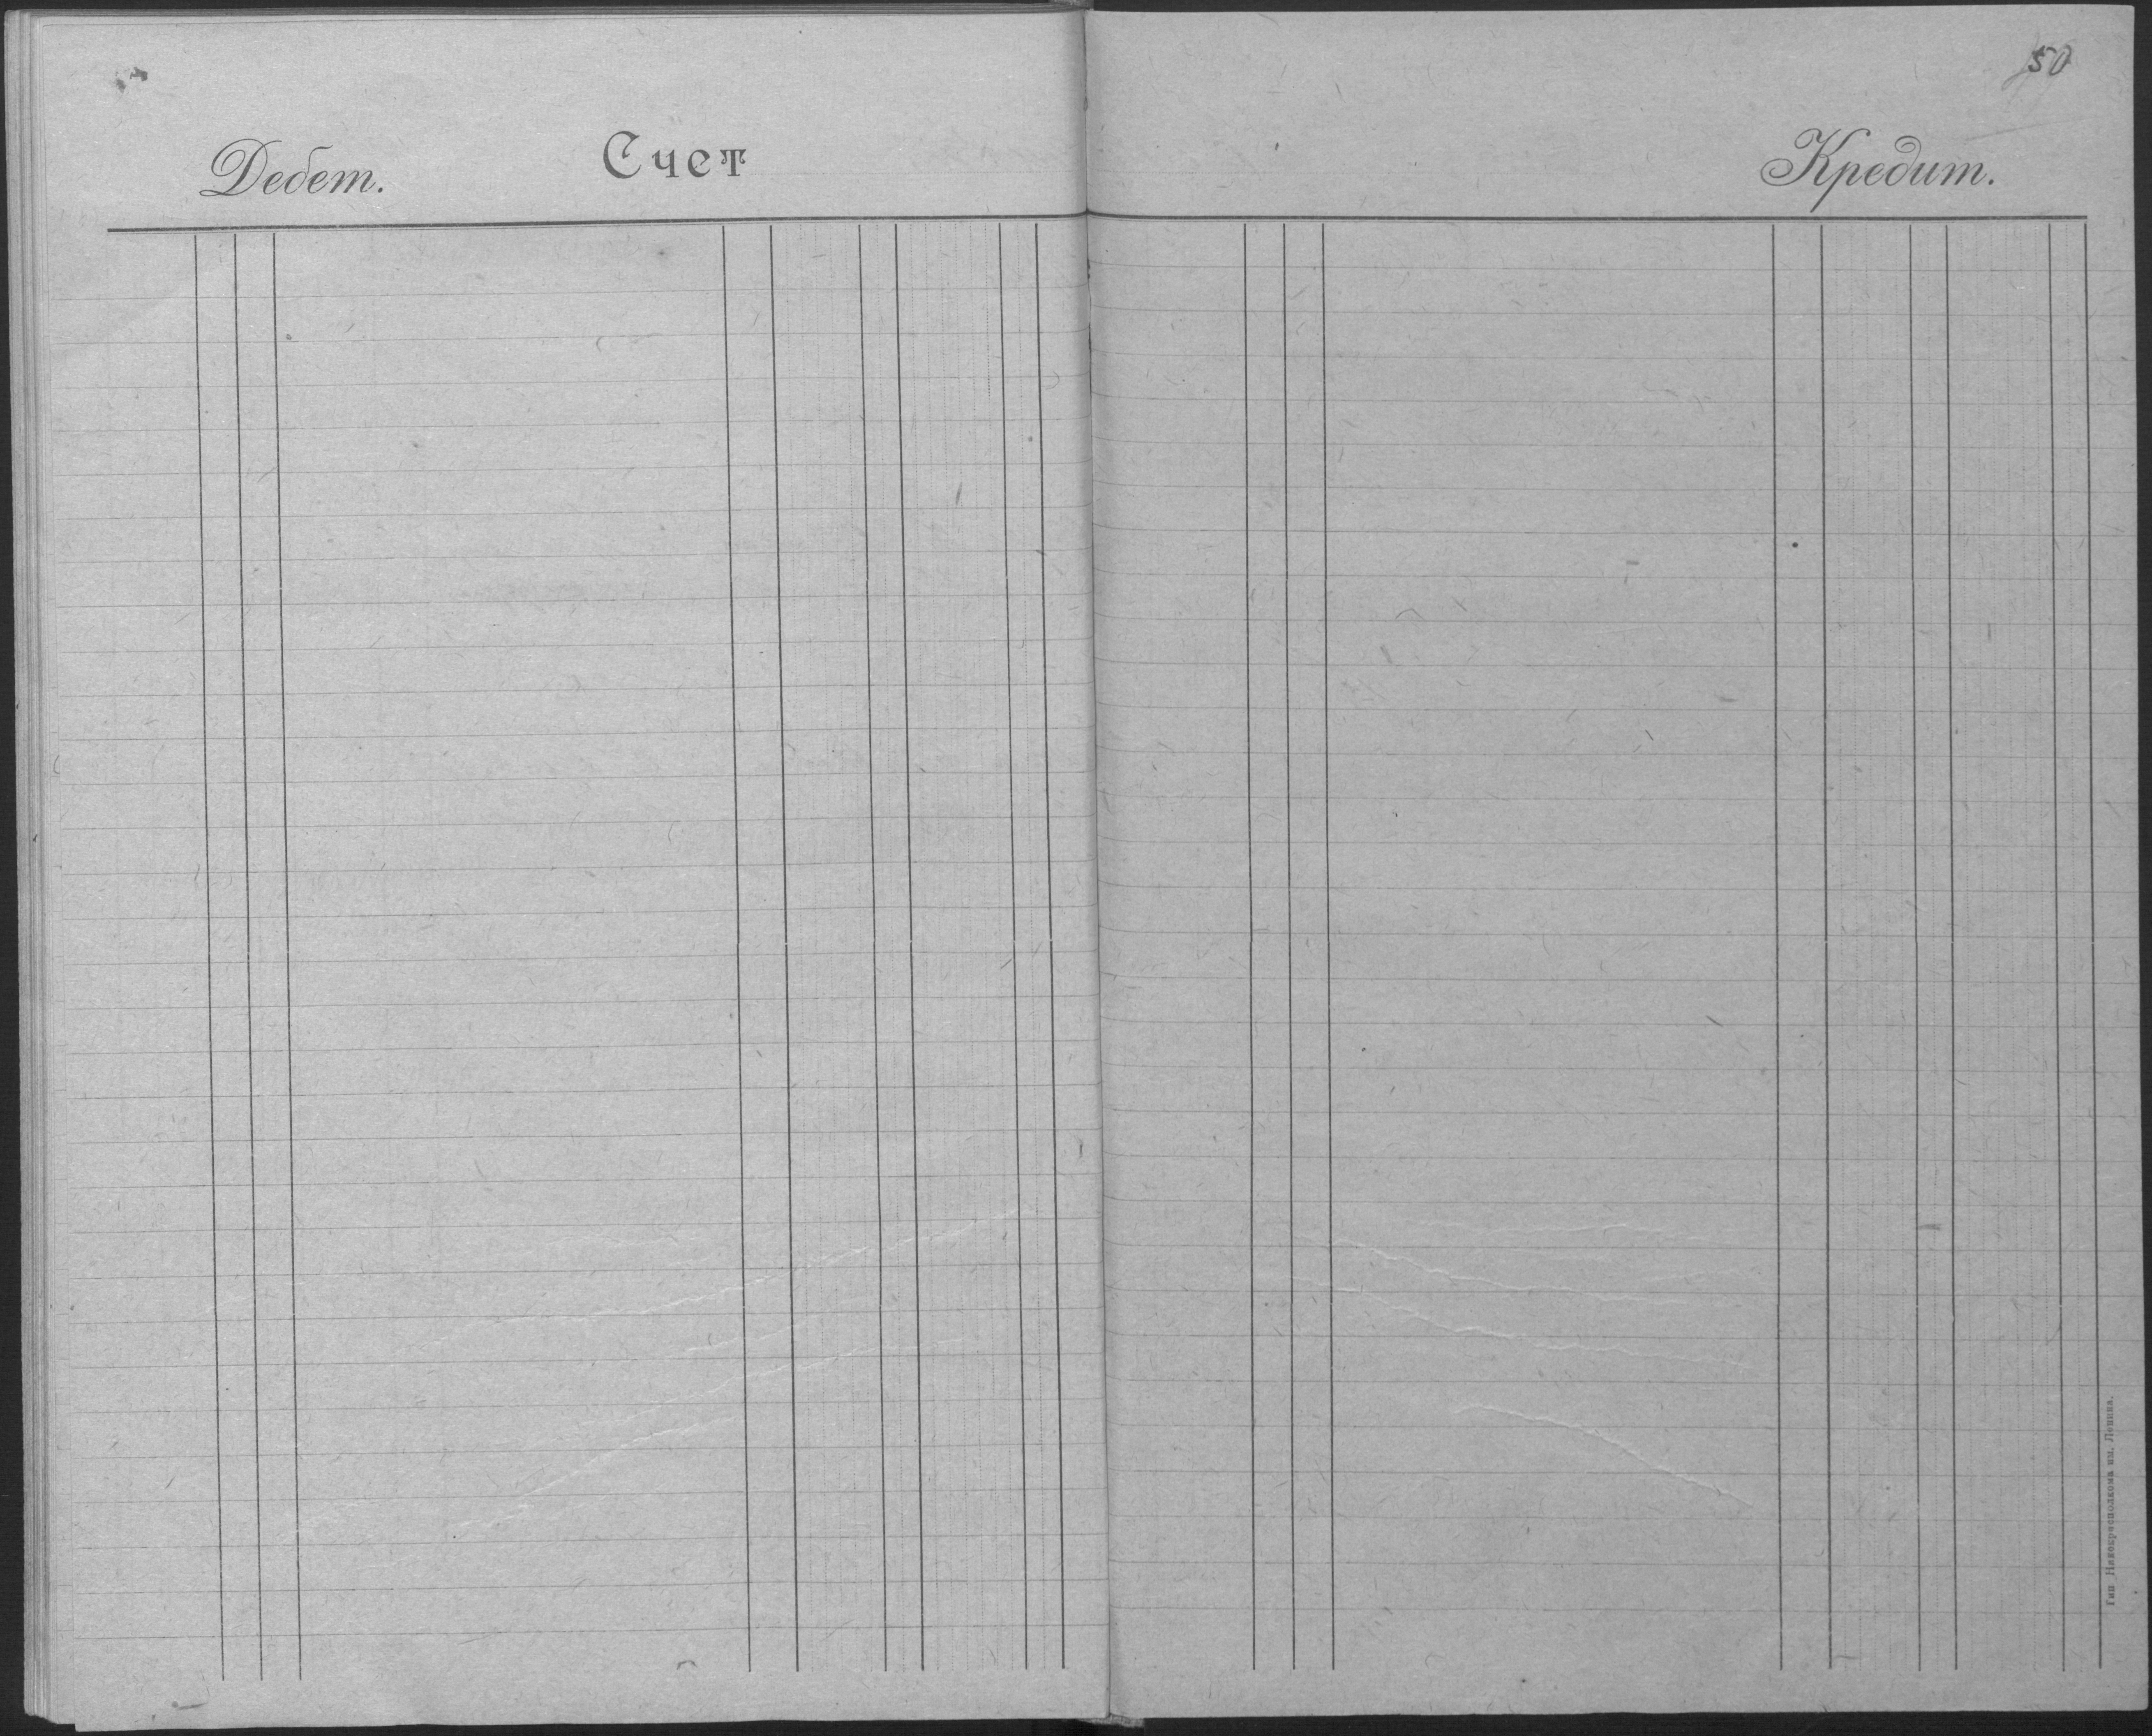 50
Дебет.
Счет
Кредит.
Тип Нижкрисполкома им. Ленина.